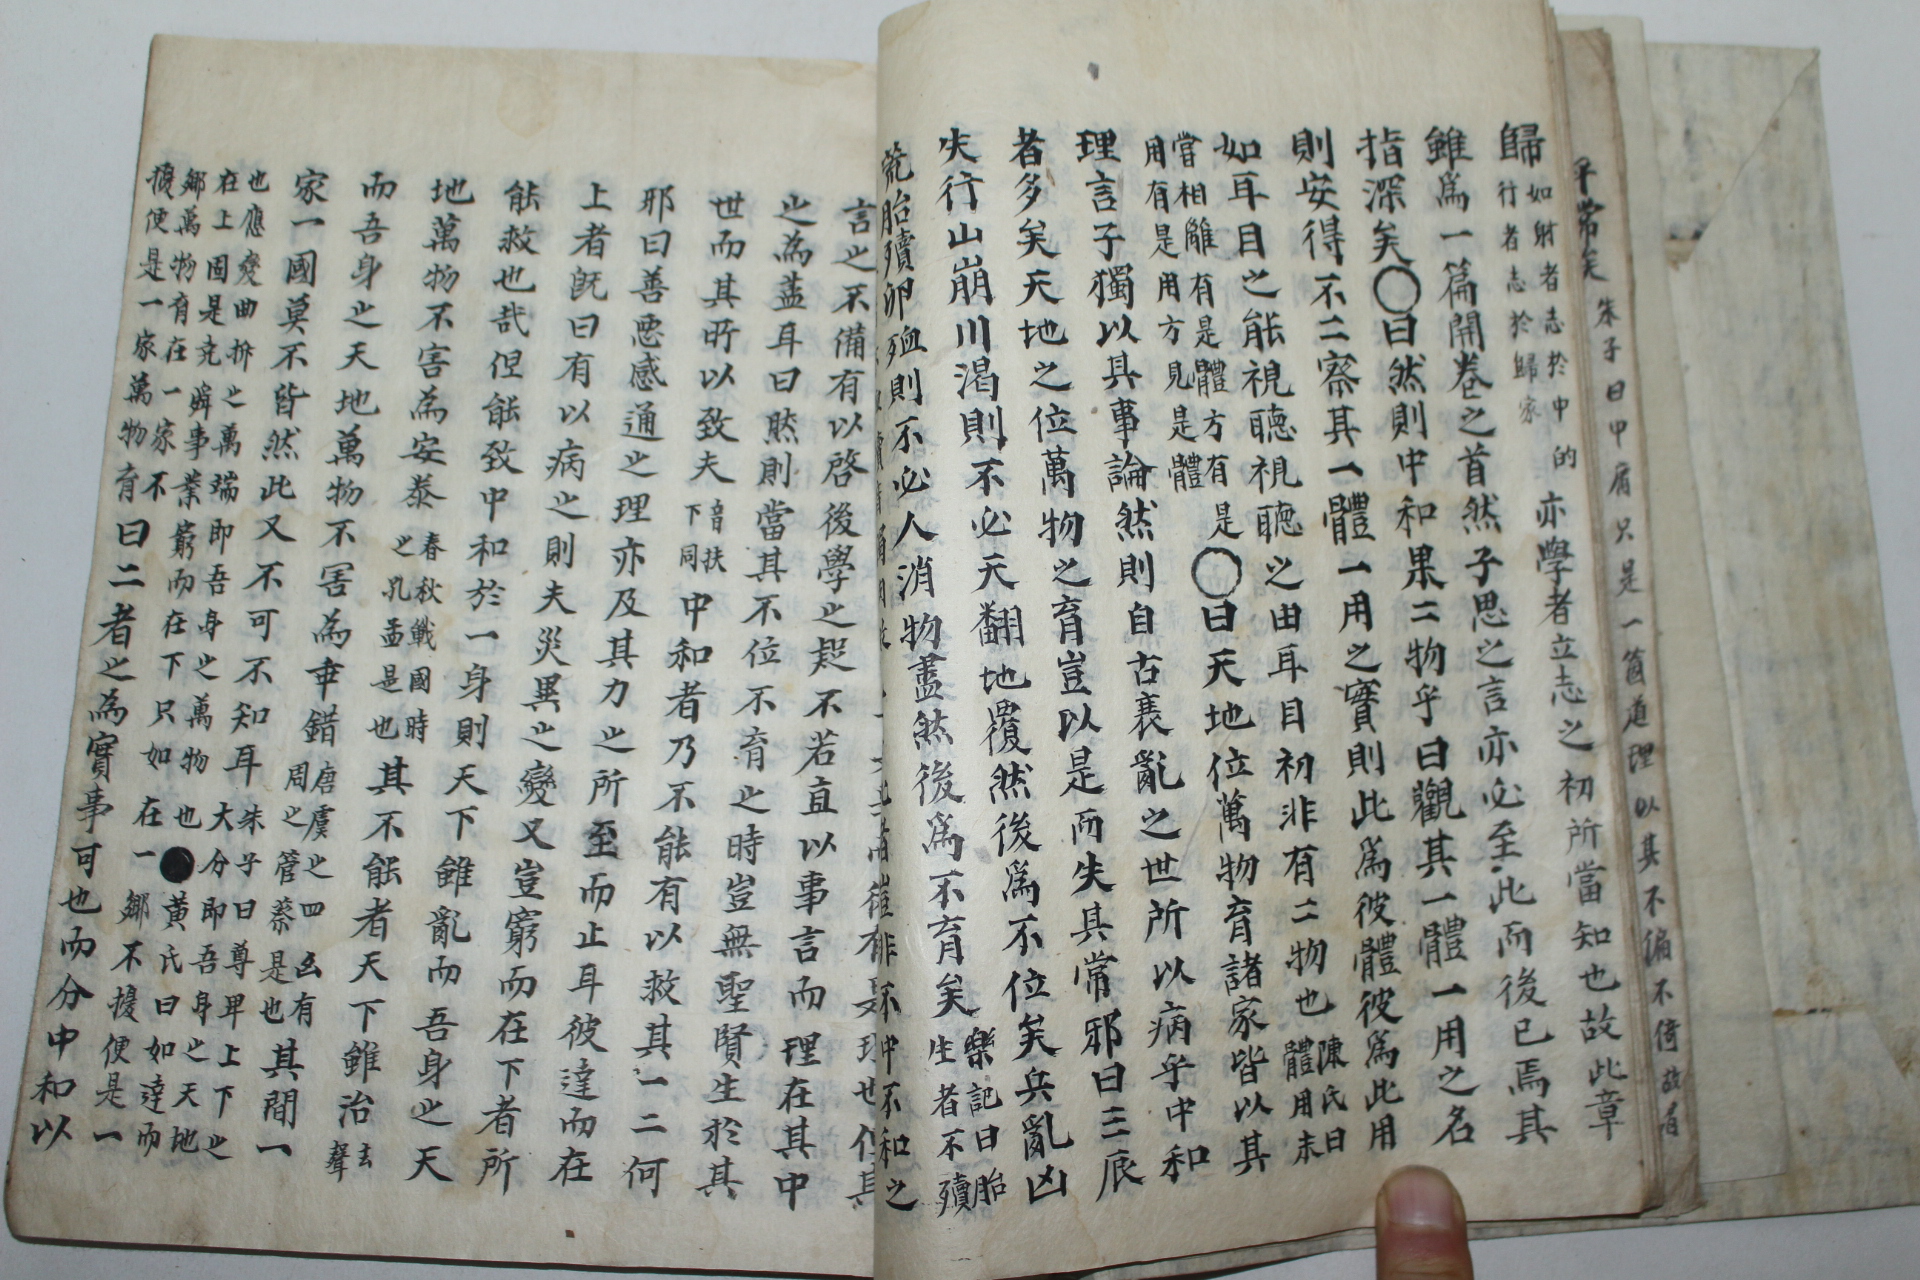 平常矣 朱子曰中庸只是一箇道理以其不偏不倚故
歸 如射者志於中的 行者志於歸家 亦學者立志之初所當知也故此章
雖爲一篇開卷之首然子思之言亦必至此而後已焉其
指深矣○曰然則中和果二物乎曰觀其一體一用之名
則安得不二察其一體一用之實則此爲彼體彼爲此用
如耳目之能視聽視聽之由耳目初非有二物也 陳氏曰體用未
當相離有是體方有是 用有是用方見是體 ○曰天地位萬物育諸家皆以其
理言子獨以其事論然則自古衰亂之世所以病乎中和
者多矣天地之位萬物之育豈以是而失其常邪曰三辰
失行山崩川渴則不必天翻地覆然後爲不位矣兵亂凶
荒胎殰卵殈則不必人消物盡然後爲不育矣 樂記曰胎生者不殰
言之不備有以啓後學之疑不若直以事言而理在其中
之為盖耳曰然則當其不位不育之時豈無聖賢生於其
世而其所以致夫 音扶下同 中和者乃不能有以救其一二何
邪曰善惡感通之理亦及其力之所至而止耳彼達而在
上者旣曰有以病之則夫災異之變又豈窮而在下者所
能救也哉但能致中和於一身則天下雖亂而吾身之天
地萬物不害為安泰 春秋戰國時之孔孟是也 其不能者天下雖治 去聲
而吾身之天地萬物不害為乖錯 唐虞之四凶有周之管蔡是也 其間一
家一國莫不皆然此又不可不知耳 朱子曰尊卑上下之大分即吾身之天地
也應變曲折之萬端即吾身之萬物也 ●黃氏曰如達而
在上固是堯舜事業窮而在下只如在一鄉不擾便是一
鄉萬物育在一家不擾便是一家萬物育 曰二者之為實事可也而分中和以